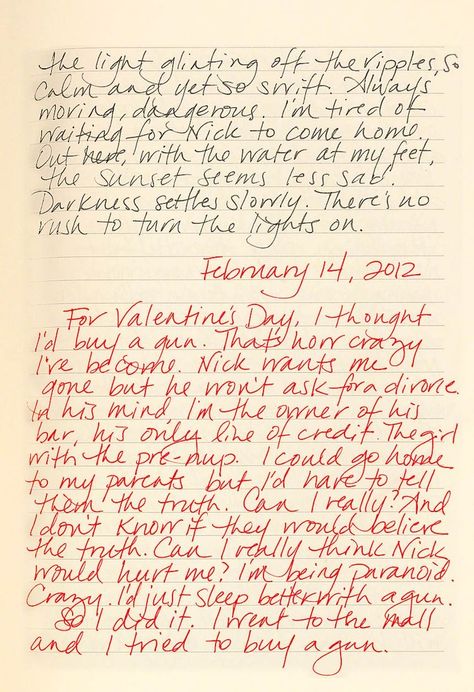 the light glinting off the ripples, so
calm and yet so swift. Always
moving, dangerous. I'm tired of
waiting for Nick to come home.
Out here, with the water at my feet,
the sunset seems less sad.
Darkness settles slowly. There's no
rush to turn the lights on.
February 14, 2012
For Valentine's Day, I thought
I'd buy a gun. That's how crazy
I've become. Nick wants me
gone but he won't ask for a divorce.
In his mind, I'm the owner of his
bar, his only line of credit. The girl
with the pre-nup. I could go home
to my parents but I'd have to tell
them the truth. Can I really? And
I don't know if they would believe
the truth. Can I really think Nick
would hurt me? I'm being paranoid.
Crazy. I'd just sleep better with a gun.
So I did it. I went to the mall
and I tried to buy a gun.